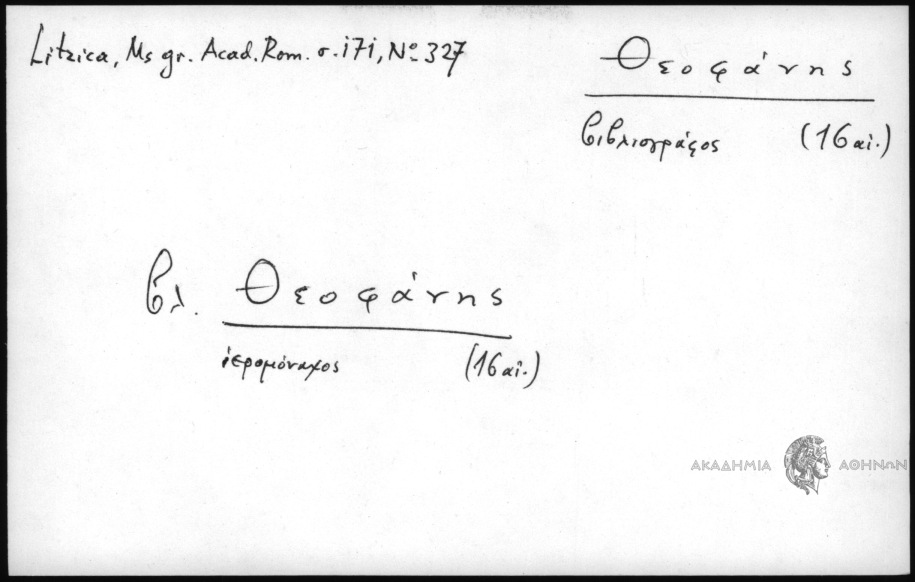 Litzica, Ms gr. Acad. Rom. σ. 171, Nº 327
Θεοφάνης
βιβλιογράφος (16 αἰ.)
βλ. Θεοφάνης
ἱερομόναχος (16 αἰ.)
ΑΚΑΔΗΜΙΑ ΑΘΗΝΩΝ